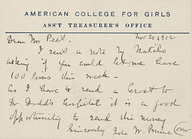 AMERICAN COLLEGE FOR GIRLS
ASS'T TREASURER'S OFFICE
Nov. 20 1912
Dear Mr Peet.
I send a note by
asking if you could let me have
100 liras this week -
As I have to send a
to Dr Dodd's hospital it is a good
opportunity to send this money
Sincerely Ida W. Prime